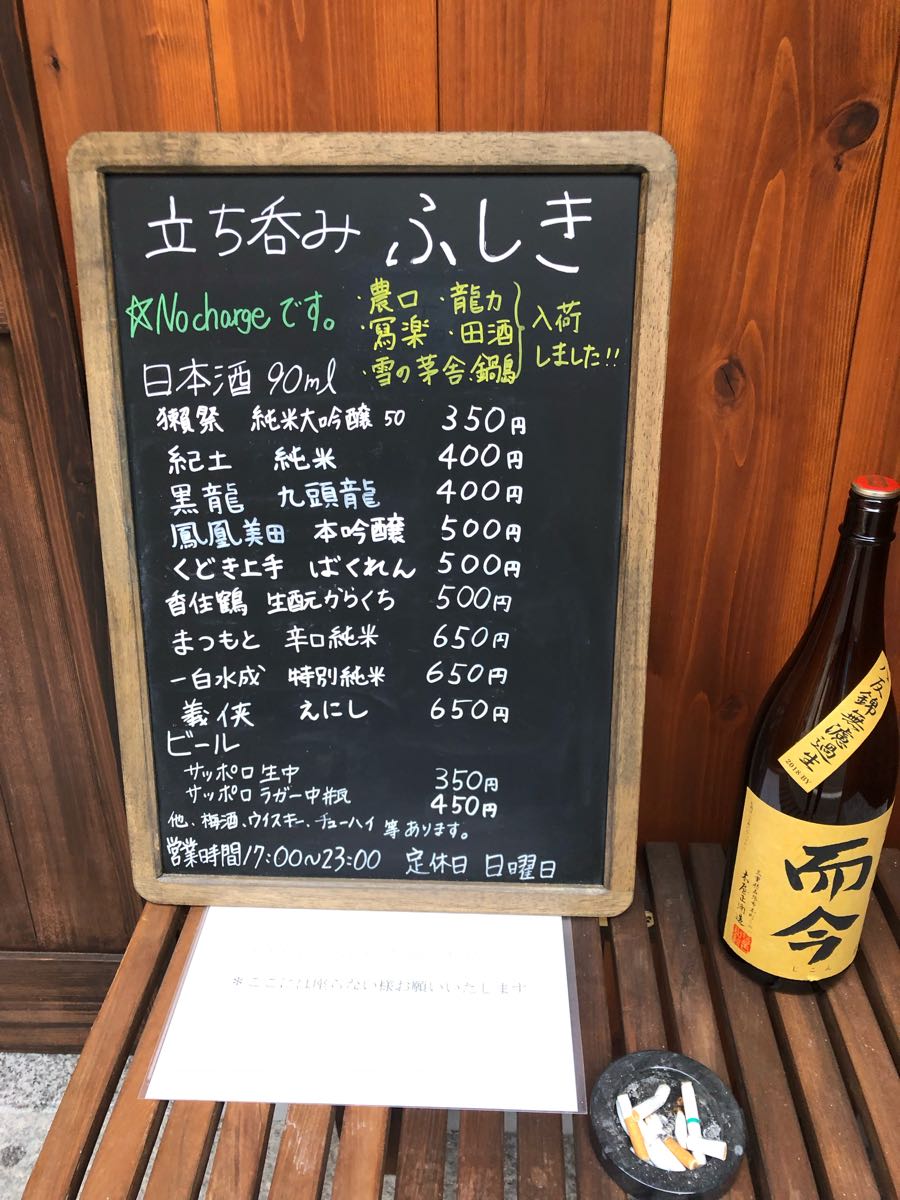 立ち呑み ふしき
☆No chargeです。
・農口 ・龍力
・寫楽 ・田酒
・雪の茅舎・鍋島
入荷
しました!!
日本酒 90ml
獺祭 純米大吟醸 50 350円
紀土 純米 400円
黒龍 九頭龍 400円
鳳凰美田 本吟醸 500円
くどき上手 ばくれん 500円
香住鶴 生酛からくち 500円
まつもと 辛口純米 650円
一白水成 特別純米 650円
義侠 えにし 650円
ビール
サッポロ生中 350円
サッポロラガー中瓶 450円
他、梅酒、ウイスキー、チューハイ 等あります。
営業時間17:00〜23:00 定休日 日曜日
＊ここには座らない様お願いいたします
八反錦無濾過生
2018BY
而今
じこん
木屋正酒造